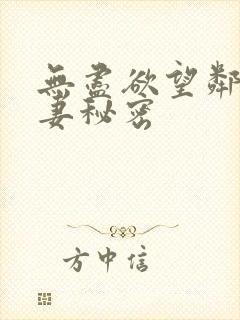 無盡欲望鄰
妻秘密
方中信